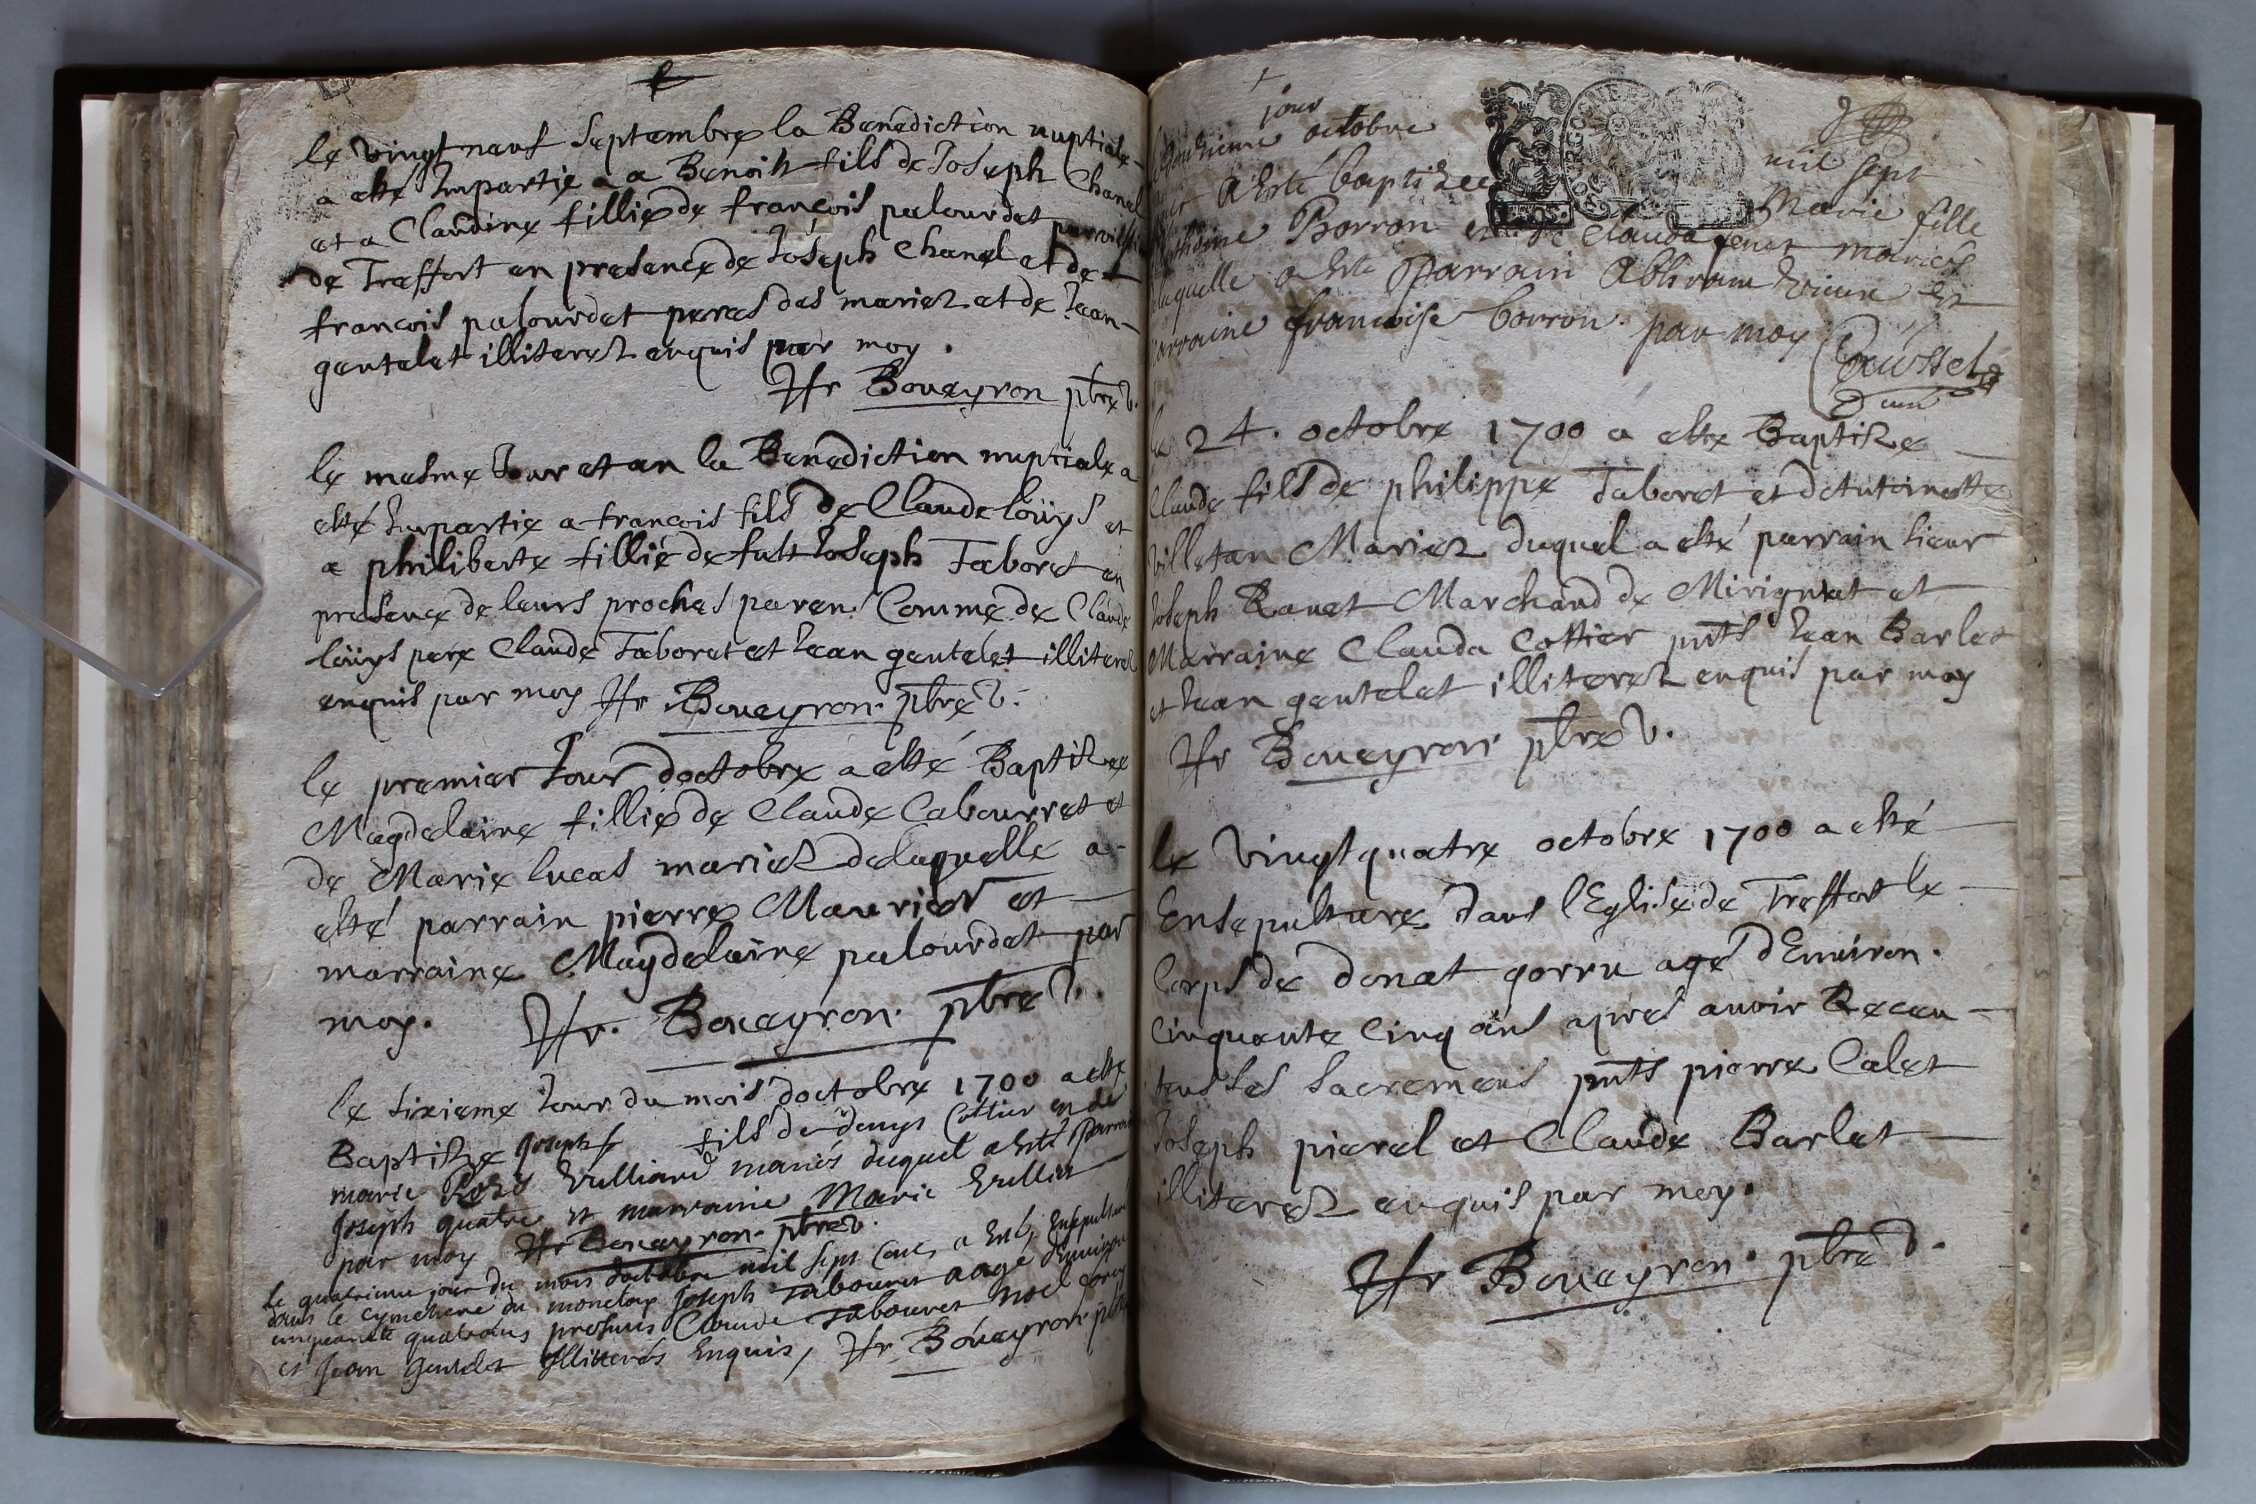 le vingt neuf septembre la Benediction nuptiale
a esté Impartie a a Benoist fils de Joseph Chanel
et a Claudine fillie de francois palourdet parroisse
de Treffort en presence de Joseph Chanel et de
francois palourdet peres des mariez et de Jean
gentelet illiterez enquis par moy.
Hr Boueyron pbre v.
le mesme Jour et an la Benediction nuptiale a
esté Impartie a francois fils de Claude loüys et
a philiberte fillie de fust Joseph Taboret en
presence de leurs proches parens Comme de Claude
loüys pere Claude Taboret et Jean gentelet illiterez
enquis par moy Hr Boueyron pbre v.
le premier Jour doctobre a esté Baptizee
Magdelaine fillie de Claude Cabourret et
de Marie lucas mariez de laquelle a
esté parrain pierre Maurier et
marraine Magdelaine palourdet par
moy. Hr. Boueyron pbre v.
le sixieme Jour du mois doctobre 1700 a esté
Baptize Joseph fils de denys Cottier et de
marie Vulliard mariés duquel a esté Parrain
Joseph quatre et marraine Marie Vulliet
par moy Hr Boueyron pbre v.
Le quatrieme jour du mois doctobre mil sept cens a esté Ensepulturé
dans le cymetiere du Joseph Tabouret aagé d'Environ
cinquante quatre ans presens Claude Tabouret Noel
et Jean Gentelet Illitterés Enquis, Hr Boueyron pbre
jour
octobre mil sept
a esté baptizee Marie fille
Borron et de Clauda mariés
laquelle a esté Parrain Abbraam et
marraine francoise borron par moy
le 24. octobre 1700 a esté Baptize
Claude fils de philippe Taboret et dAntoinette
Villetan Mariez duquel a esté parrain sieur
Joseph Ravet Marchand de Mirignat et
Marraine Clauda Cottier pnts Jean Barlet
et Jean gentelet illiterez enquis par moy
Hr Boueyron pbre v.
le vingt quatre octobre 1700 a esté
Ensepulturé dans l'Eglise de Treffort le
Corps de donat gorru agé d'Environ
Cinquante Cinq ans apres avoir Receu
tous les sacremens pnts pierre Calet
Joseph pierel et Claude Barlet
illiterez enquis par moy.
Hr Boueyron pbre v.